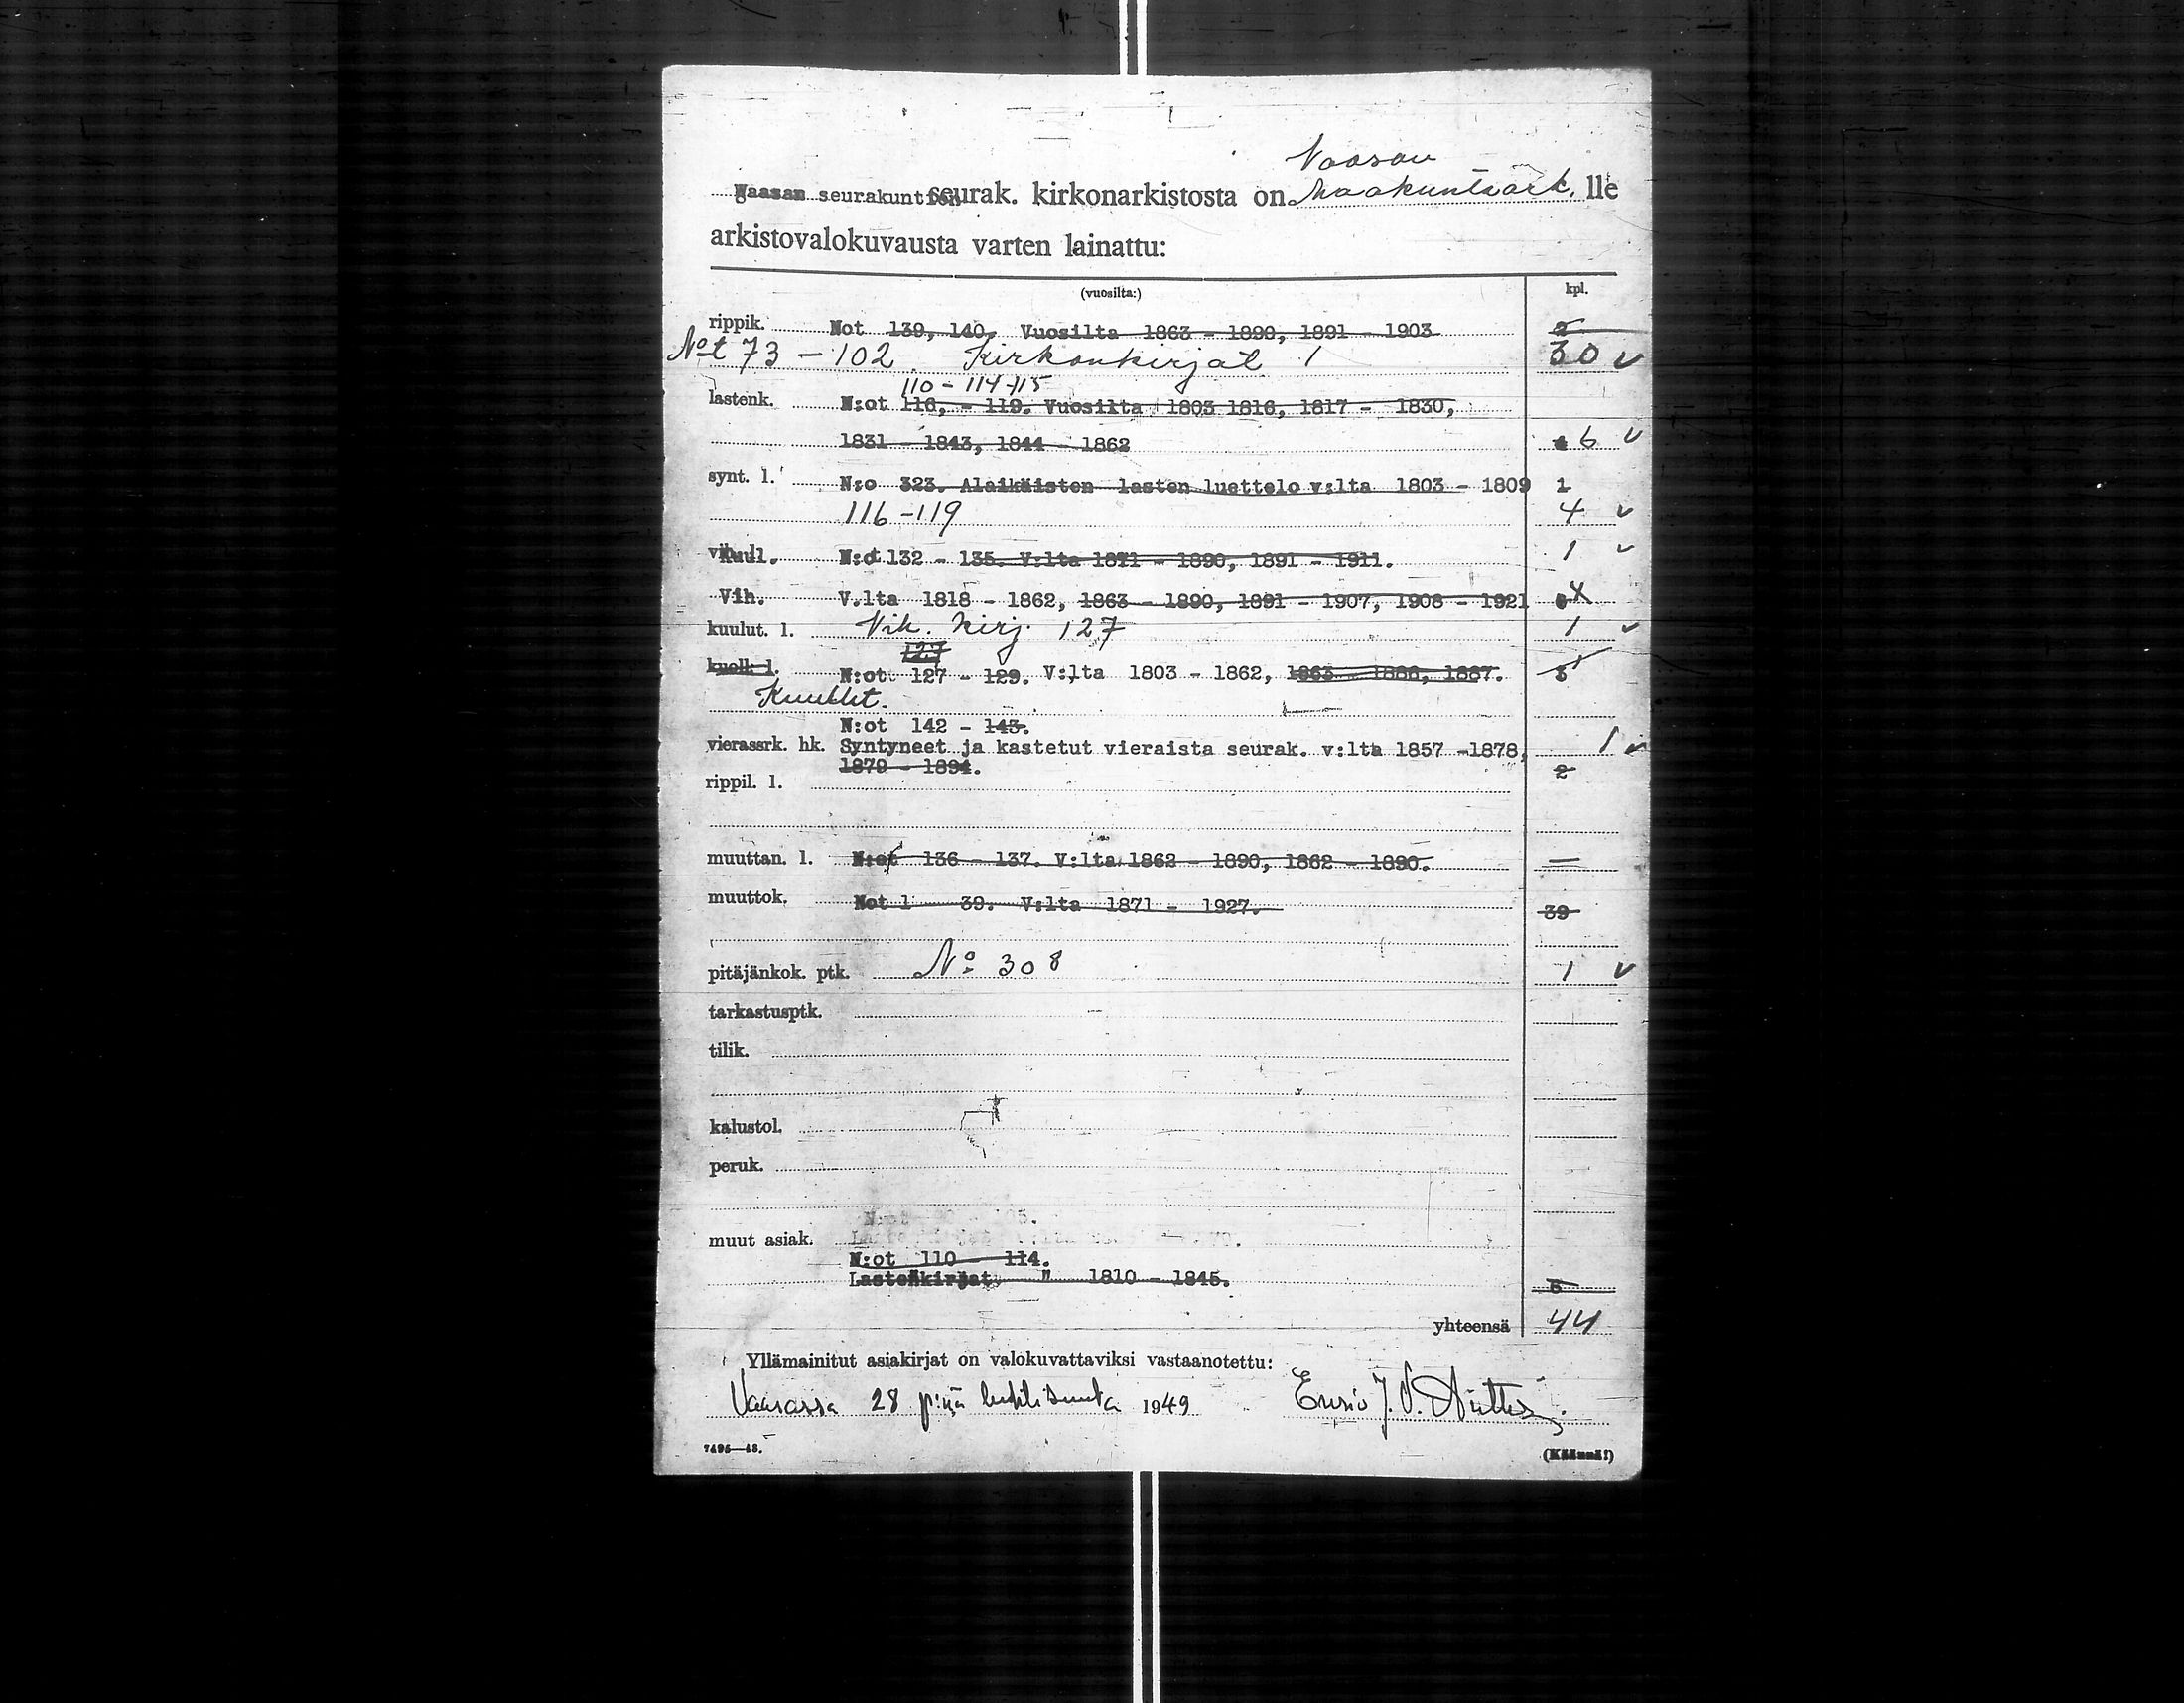 Vaasan
Vaasan seurakuntien seurak. kirkonarkistosta on Maakuntaark. lle
arkistovalokuvausta varten lainattu:
(vuosilta:) kpl.
rippik. Not 139, 140. Vuosilta 1863 - 1890, 1891 - 1903 2
Not 73 - 102 Kirkonkirjat 1 30 v
110 - 114-115
lastenk. N:ot 116, - 119. Vuosilta 1803 1816, 1817 - 1830,
1831 - 1843, 1844 - 1862 4 6 v
synt. l. N:o 323. Alaikäisten lasten luettelo v:lta 1803 - 1809 1
116 - 119 4 v
Kuul. N:ot 132 - 135. V:lta 1871 - 1890, 1891 - 1911. 1 v
Vih. V.lta 1818 - 1862, 1863 - 1890, 1891 - 1907, 1908 - 1921
kuulut. l. Vih. kirj. 127 1 v
127
kuoll. l. N:ot 127 - 129. V:lta 1803 - 1862, 1863 - 1886, 1887. 3
Kuullet.
N:ot 142 - 143.
vierassrk. hk. Syntyneet ja kastetut vieraista seurak. v:lta 1857 -1878, 1 v
1879 - 1894. 2
rippil. l.
muuttan. l. N:ot 136 - 137. V:lta 1862 - 1890, 1862 - 1890. —
muuttok. Not 1 - 39. V:lta 1871 - 1927. 39
pitäjänkok. ptk. No 308 1 v
tarkastusptk.
tilik.
kalustol.
peruk.
muut asiak.
N:ot 110 - 114.
Lastenkirjat " 1810 - 1845. 5
yhteensä 44
Yllämainitut asiakirjat on valokuvattaviksi vastaanotettu:
Vaasassa 28 p:nä huhtikuuta 1949 Ensio J. V.
7495—48. (Käännä!)